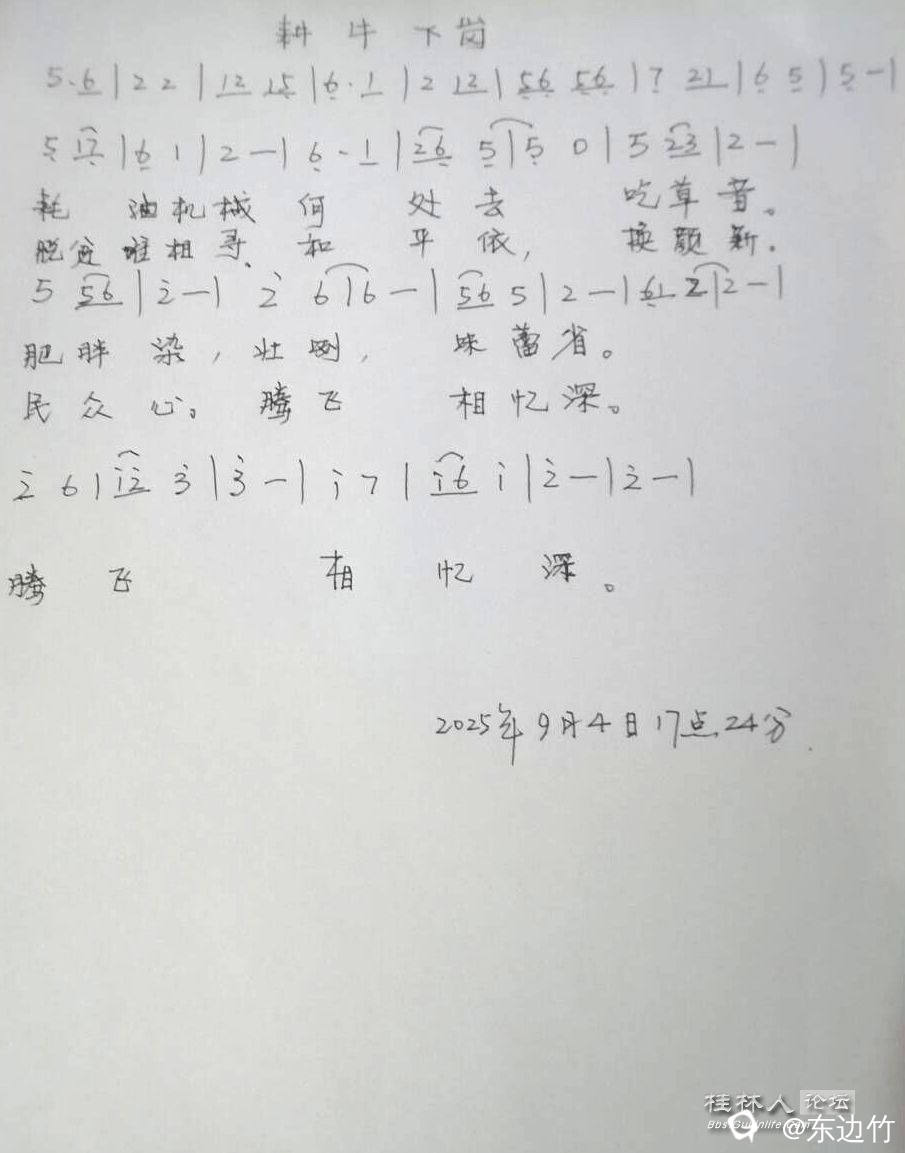 耕牛下岗
5·6|22|12 15|6·1|2 12|56 56|7 21|6 5|5-|
5 17|61|2-|6·1|26 5|5 0|5 23|2-|
耗油机械何处去 吃草音。
脱贫谁相寻,和平依,换颜新。
5 56|2-|2 6|6-|56 5|2-|61 2|2-|
肥胖染,壮咧,味蕾省。
民众心。腾飞 相忆深。
2 6|12 3|3-|17|16 1|2-|2-|
腾飞 相忆深。
2025年9月4日17点24分
桂林人论坛
Bbs.Guilinlife.com
@东边竹